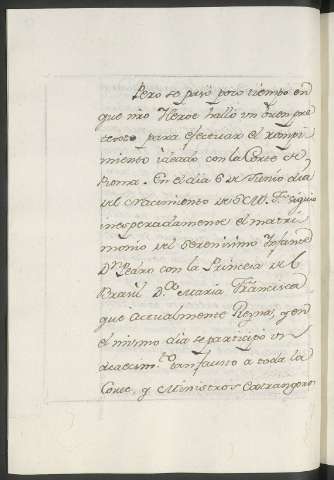 Pero se pasó poco tiempo en
que nro Heroe halló un buen pre
texto para efectuar el rompi
miento ideado con la Corte de
Roma. En el dia 6 de Junio dia
del Nacimiento de S.M. F.ª siguio
inesperadamente el matri
monio del Serenissimo Infante
Dn. Pedro con la Princesa del
Brasil D.ª Maria Francisca
que actualmente Reyna, y en
el mismo dia se participó un
acaecim.to tan fausto a toda la
Corte, y Ministros Extrangeros